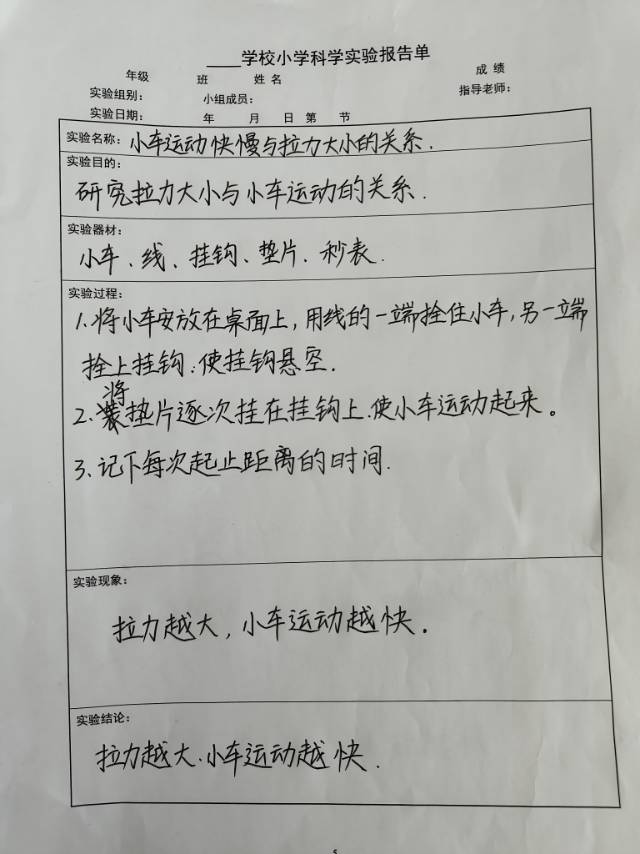 ____学校小学科学实验报告单
年级 班 姓名 成绩
实验组别: 小组成员: 指导老师:
实验日期: 年 月 日 第 节
实验名称: 小车运动快慢与拉力大小的关系.
实验目的:
研究拉力大小与小车运动的关系.
实验器材:
小车、线、挂钩、垫片、秒表.
实验过程:
1.将小车安放在桌面上,用线的一端拴住小车,另一端
拴上挂钩,使挂钩悬空.
2.将垫片逐次挂在挂钩上.使小车运动起来。
3.记下每次起止距离的时间.
实验现象:
拉力越大,小车运动越快。
实验结论:
拉力越大、小车运动越快.
5